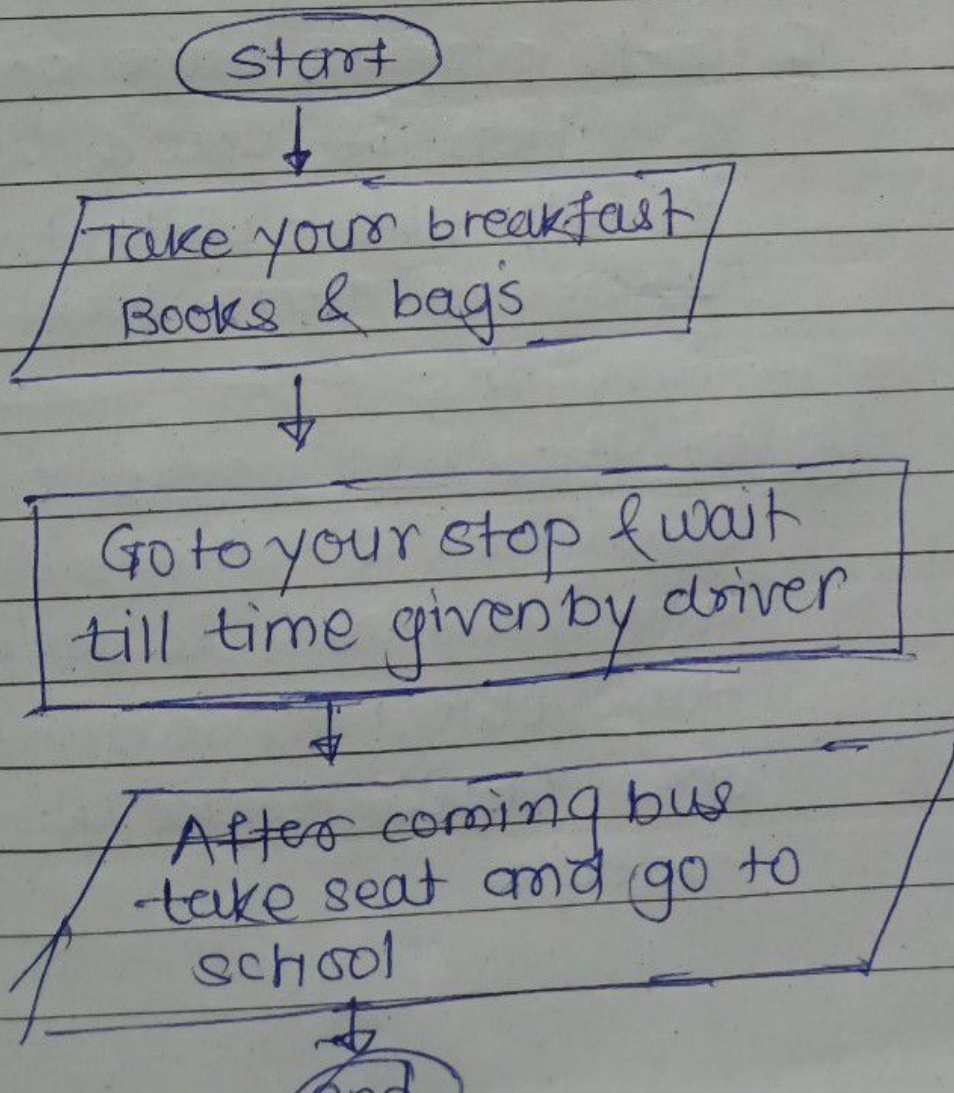 Start
Take your breakfast
Books & bags
Go to your stop & wait
till time given by driver
After coming bus
take seat and go to
school
end